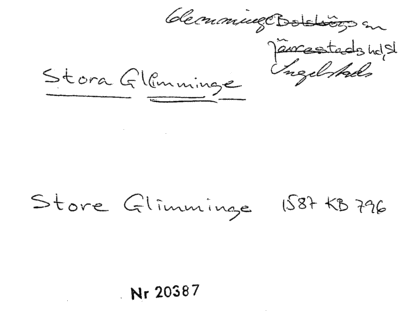 Glemminge Bolshög sn
Järrestads hd, sl
Ingelstads
Stora Glimminge
Store Glimminge 1587 KB 796
Nr 20387